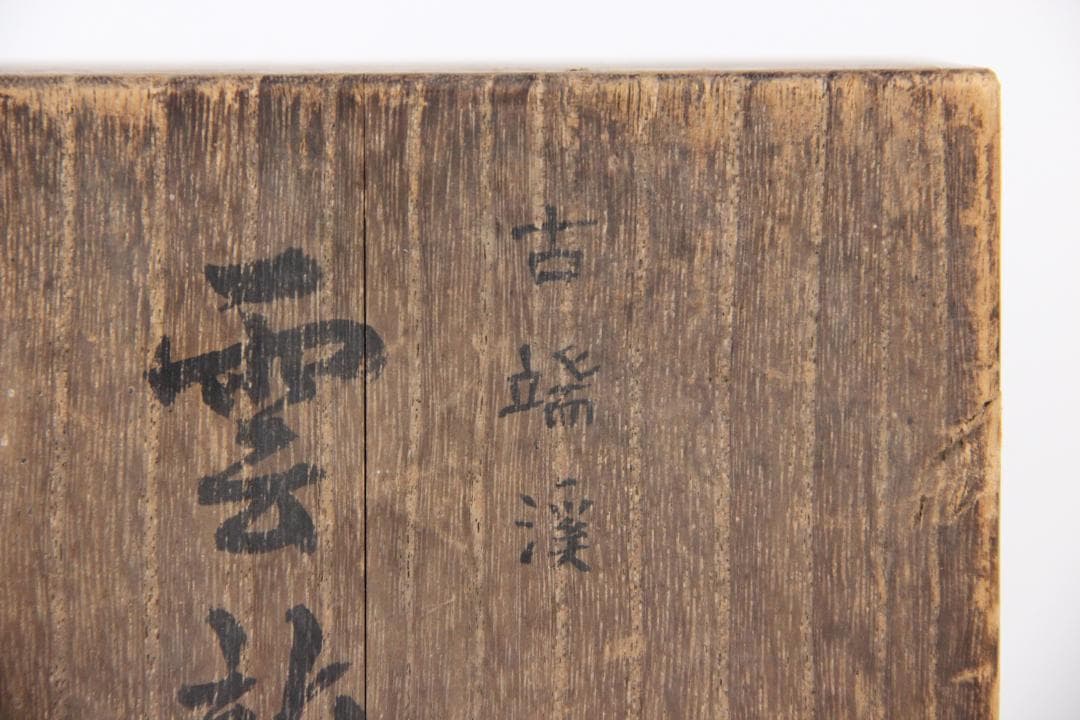 古端渓
雲